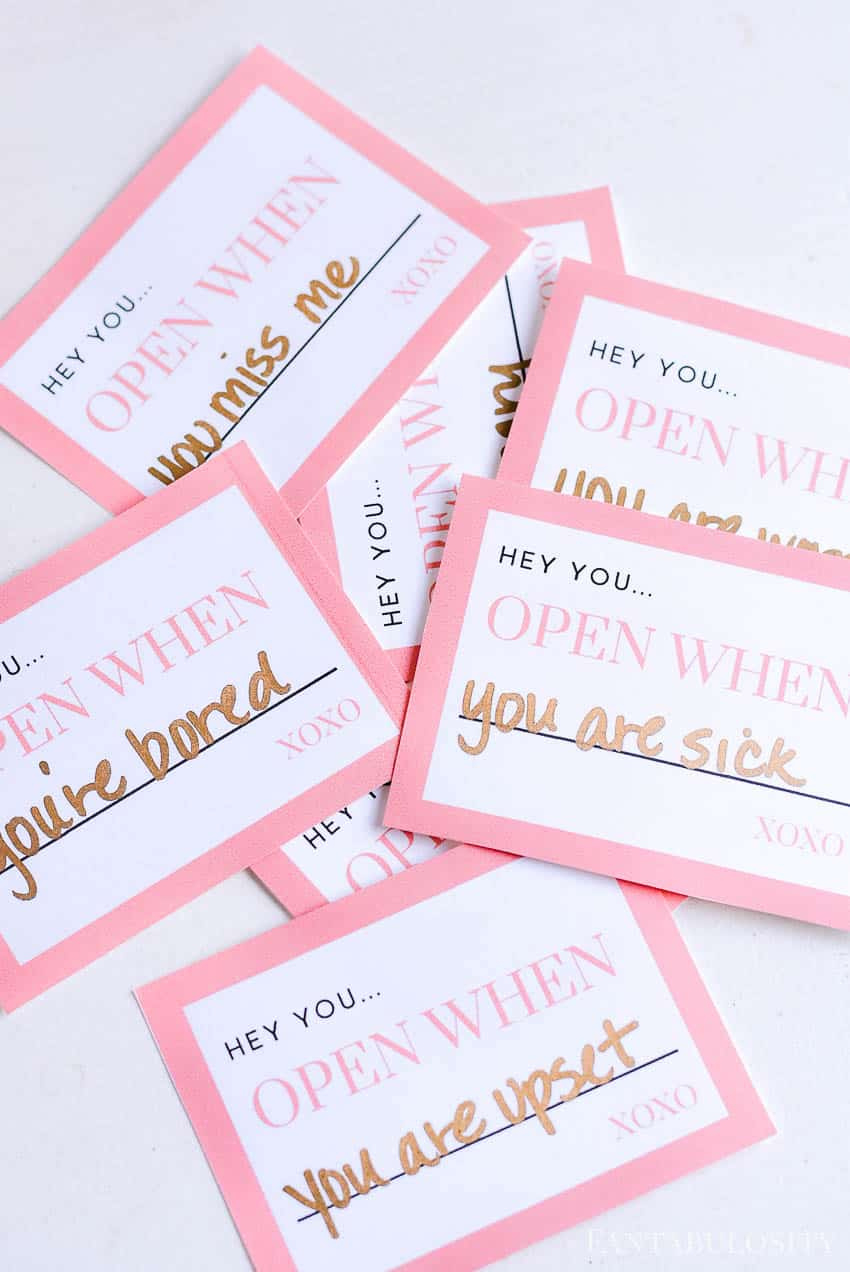 HEY YOU...
OPEN WHEN
you miss me
XOXO
HEY YOU...
OPEN
XOXO
HEY YOU...
OPEN
you are
HEY YOU...
OPEN WHEN
you are sick
XOXO
OPEN WHEN
you're bored
XOXO
HEY
OPEN
HEY YOU...
OPEN WHEN
you are upset
XOXO
FANTABULOSITY